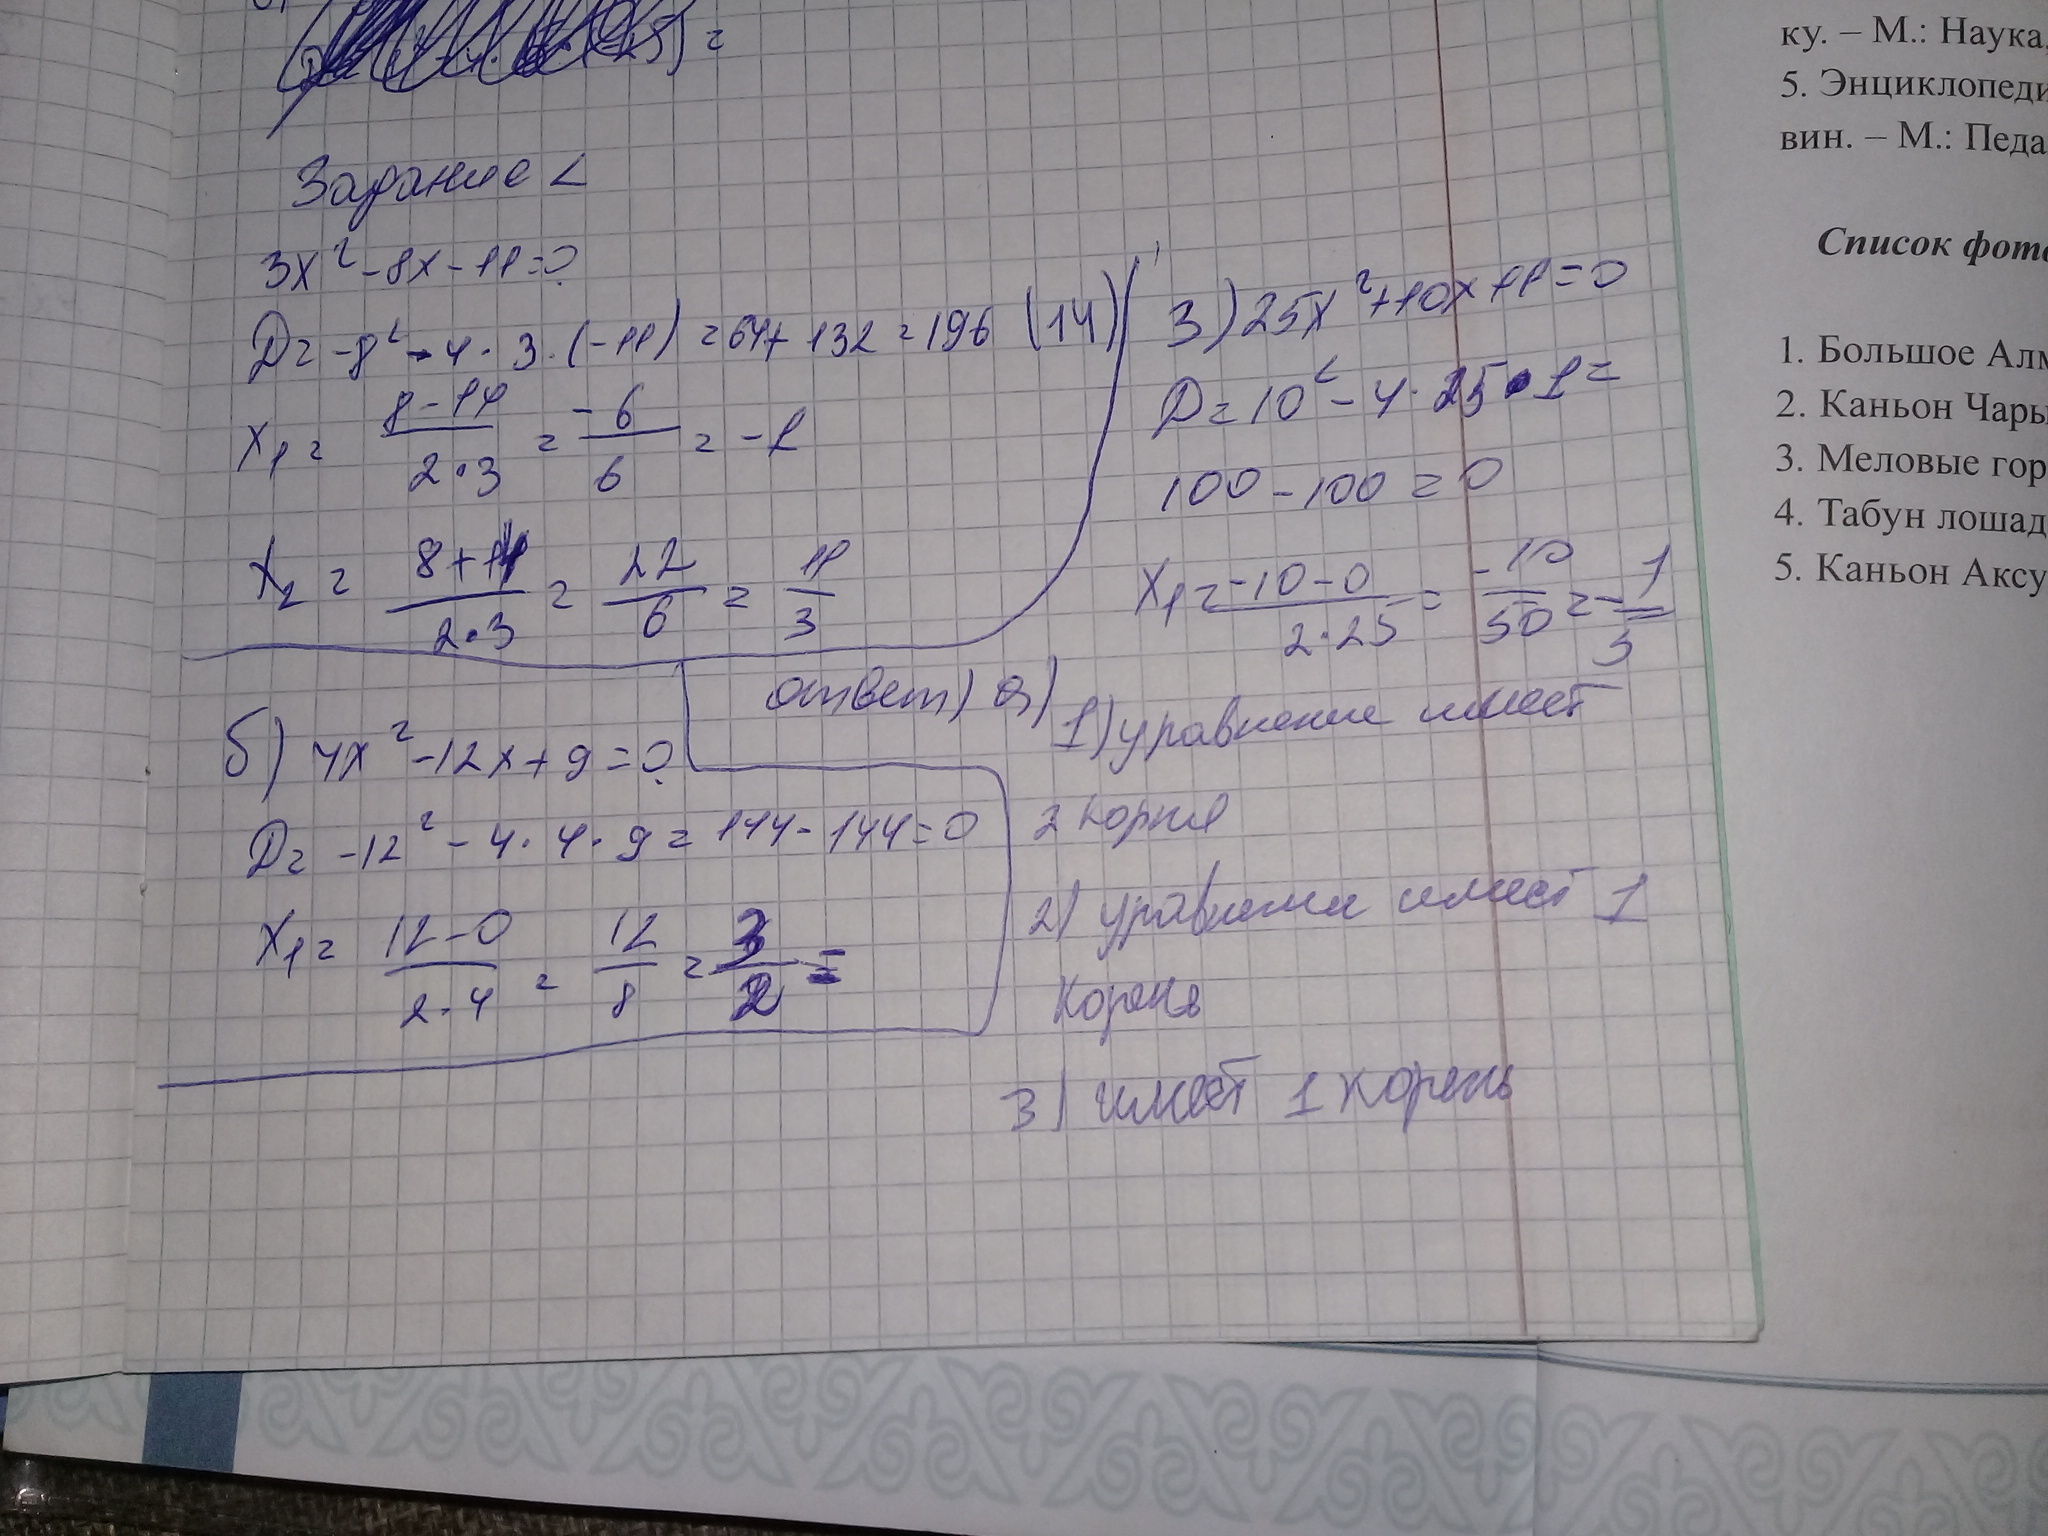 Задание 2
3x² - 8x - 11 = 0
D = -8² - 4 · 3 · (-11) = 64 + 132 = 196 (14)
x₁ = (8 - 14)/(2 · 3) = -6/6 = -1
x₂ = (8 + 14)/(2 · 3) = 22/6 = 11/3
б) 4x² - 12x + 9 = 0
D = -12² - 4 · 4 · 9 = 144 - 144 = 0
x₁ = (12 - 0)/(2 · 4) = 12/8 = 3/2 =
3) 25x² + 10x + 1 = 0
D = 10² - 4 · 25 · 1 =
100 - 100 = 0
x₁ = (-10 - 0)/(2 · 25) = -10/50 = -1/5
ответ) а)
1) уравнение имеет
2 корня
2) уравнение имеет 1
корень
3) имеет 1 корень
ку. – М.: Наука,
5. Энциклопеди
вин. – М.: Педа
Список фото
1. Большое Алм
2. Каньон Чары
3. Меловые гор
4. Табун лошад
5. Каньон Аксу